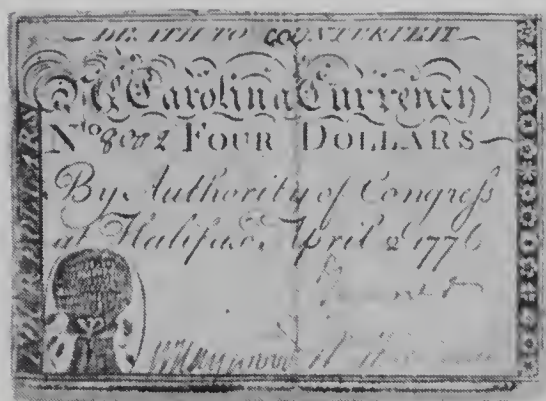 DEATH TO COUNTERFEIT
N. Carolina Currency
No 8002 FOUR DOLLARS
By Authority of Congress
at Halifax, April 2 1776
FOUR DOLLARS